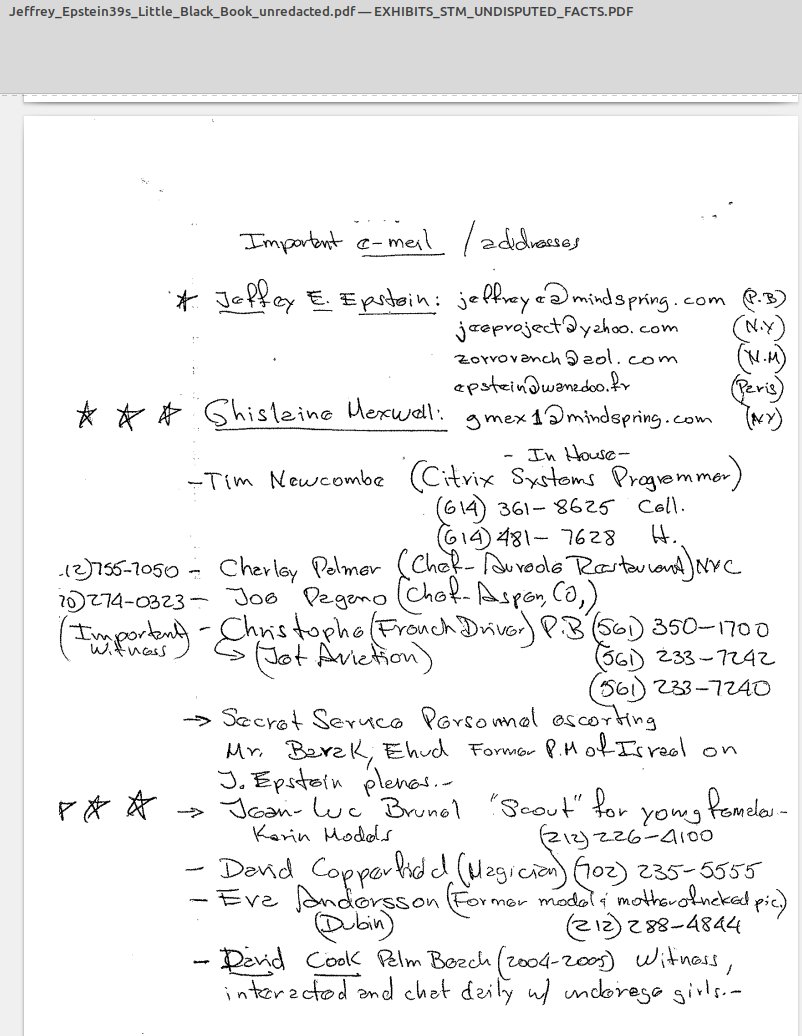 Jeffrey_Epstein39s_Little_Black_Book_unredacted.pdf — EXHIBITS_STM_UNDISPUTED_FACTS.PDF
Important e-mail / addresses
Jeffrey E. Epstein: jeffreye@mindspring.com (P.B)
jeeproject@yahoo.com (N.Y)
zorroranch@aol.com (N.M)
epstein@wanadoo.fr (Paris)
Ghislaine Maxwell: gmax1@mindspring.com (NY)
- In House-
-Tim Newcombe (Citrix Systems Programmer)
(614) 361-8625 Cell.
(614) 481-7628 H.
12)755-7050 - Charley Palmer (Chef-Aureole Restaurant) NYC
70)274-0323 - Joe Pagano (Chef-Aspen, CO,)
(Important Witness) - Christophe (French Driver) P.B (561) 350-1700
(Jet Aviation) (561) 233-7242
(561) 233-7240
→ Secret Service Personnal escorting
Mr. Barak, Ehud Former P.M of Israel on
J. Epstein planes.-
→ Jean-Luc Brunel "Scout" for young females-
Karin Models (212) 226-4100
- David Copperfield (Magician) (702) 235-5555
- Eva Andersson (Former model & mother of naked pic.)
(Dubin) (212) 288-4844
- David Cook Palm Beach (2004-2005) Witness,
interacted and chat daily w/ underage girls.-